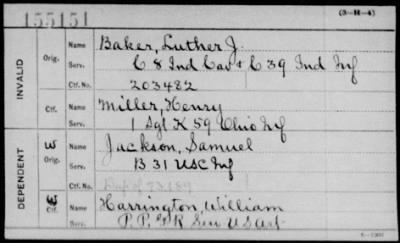 155151
(3-H-4)
INVALID
Orig.
Name Baker, Luther J.
Serv. C 8 Ind Cav & C 39 Ind Inf
Ctf. No. 203482
Ctf.
Name Miller, Henry
Serv. 1 Sgt K 59 Ohio Inf
DEPENDENT
W
Orig.
Name Jackson, Samuel
Serv. B 31 USC Inf
Ctf. No.
Ctf.
Name Harrington, William
Serv. P.P. & R Gen U S Art